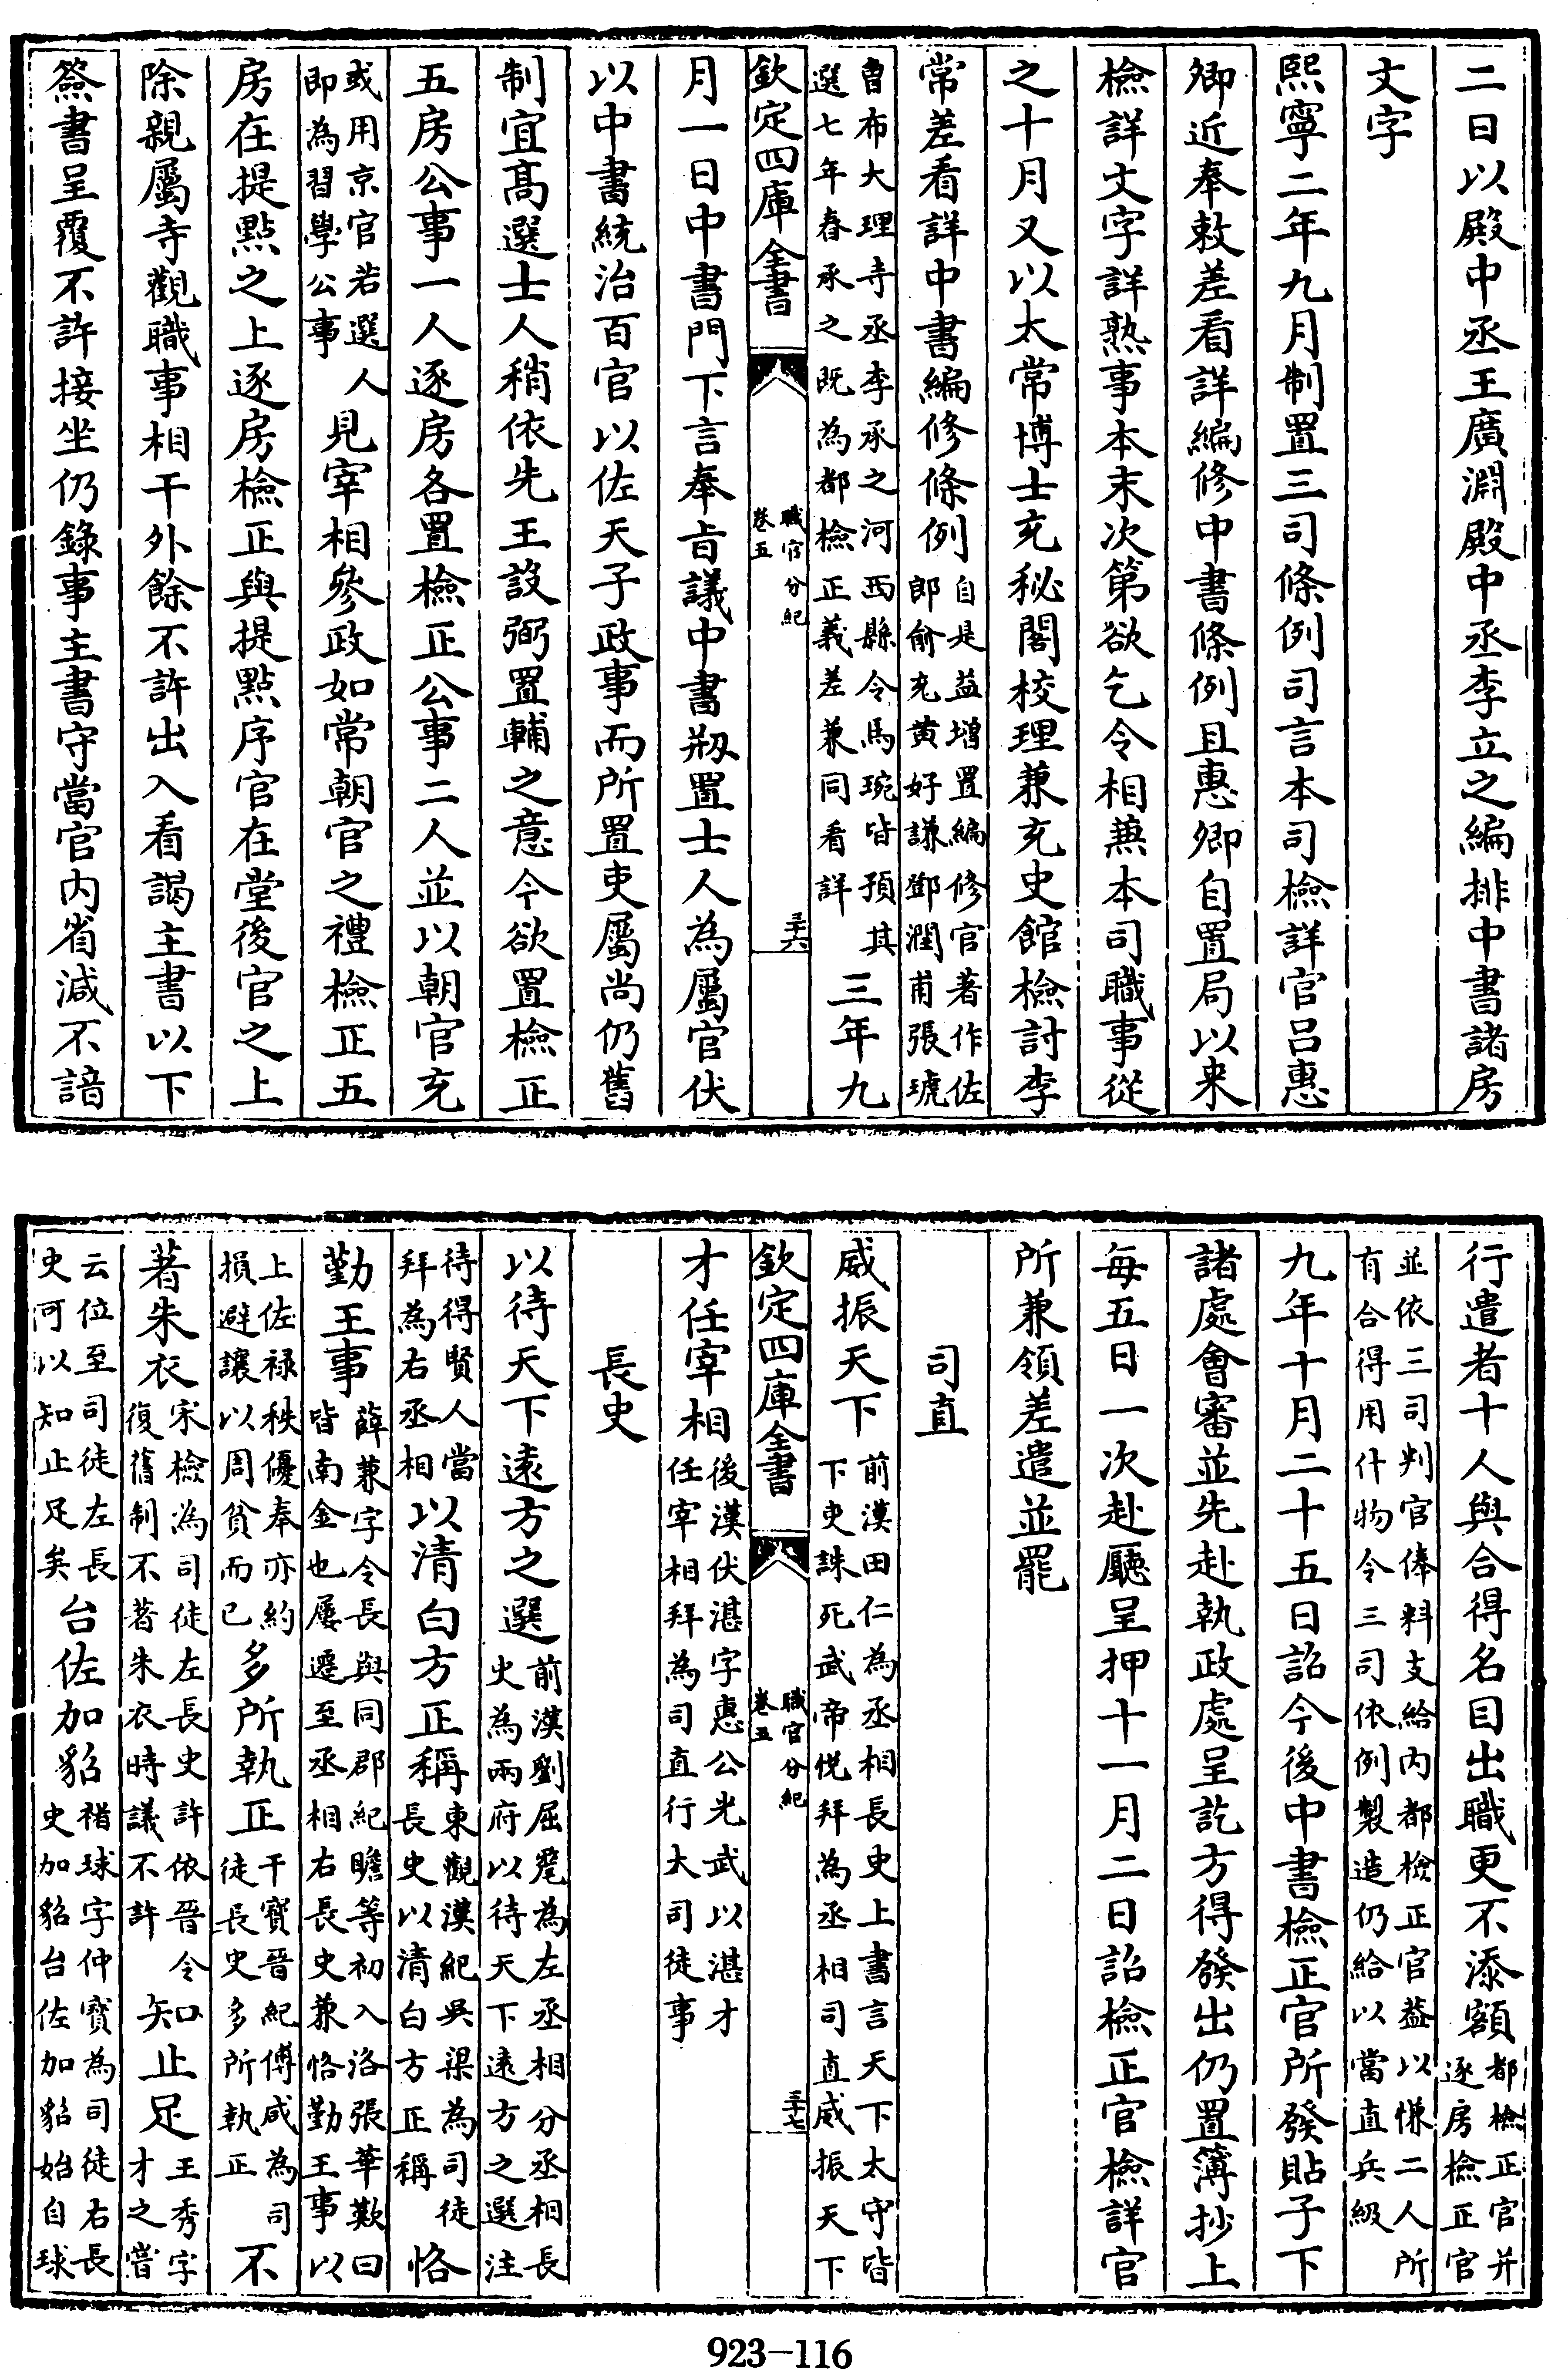 二日以殿中丞王廣淵殿中丞李立之編排中書諸房
文字
熙寧二年九月制置三司條例司言本司檢詳官呂惠
卿近奉敕差看詳編修中書條例且惠卿自置局以來
檢詳文字詳熟事本末次第欲乞令相兼本司職事從
之十月又以太常博士充秘閣校理兼充史館檢討李
常差看詳中書編修條例自是益増置編修官著作佐郎俞充黄好謙鄧潤甫張琥
曾布大理寺丞李承之河西縣令馬琬皆預其選七年春承之既為都檢正義差兼同看詳三年九
欽定四庫全書
職官分紀
卷五
三十六
月一日中書門下言奉旨議中書剏置士人為屬官伏
以中書統治百官以佐天子政事而所置吏屬尚仍舊
制宜髙選士人稍依先王設弼置輔之意今欲置檢正
五房公事一人逐房各置檢正公事二人並以朝官充
或用京官若選人即為習學公事見宰相參政如常朝官之禮檢正五
房在提點之上逐房檢正與提點序官在堂後官之上
除親屬寺觀職事相干外餘不許出入看謁主書以下
簽書呈覆不許接坐仍錄事主書守當官内省減不諳
行遣者十人與合得名目出職更不添額都檢正官并逐房檢正官
並依三司判官俸料支給内都檢正官益以慊二人所有合得用什物令三司依例製造仍給以當直兵級
九年十月二十五日詔今後中書檢正官所發貼子下
諸處會審並先赴執政處呈訖方得發出仍置簿抄上
每五日一次赴廳呈押十一月二日詔檢正官檢詳官
所兼領差遣並罷
司直
威振天下前漢田仁為丞相長史上書言天下太守皆下吏誅死武帝悅拜為丞相司直威振天下
欽定四庫全書
職官分紀
卷五
三十七
才任宰相後漢伏湛字惠公光武以湛才任宰相拜為司直行大司徒事
長史
以待天下遠方之選前漢劉屈氂為左丞相分丞相長史為兩府以待天下遠方之選注
待得賢人當拜為右丞相以清白方正稱東觀漢紀吳梁為司徒長史以清白方正稱恪
勤王事薛兼字令長與同郡紀瞻等初入洛張華歎曰皆南金也屢遷至丞相右長史兼恪勤王事以
上佐禄秩優奉亦約損避讓以周貧而已多所執正干寳晉紀傅咸為司徒長史多所執正不
著朱衣宋檢為司徒左長史許依晉令復舊制不著朱衣時議不許知止足王秀字才之嘗
云位至司徒左長史可以知止足矣台佐加貂褚球字仲寳為司徒右長史加貂台佐加貂始自球
923-116